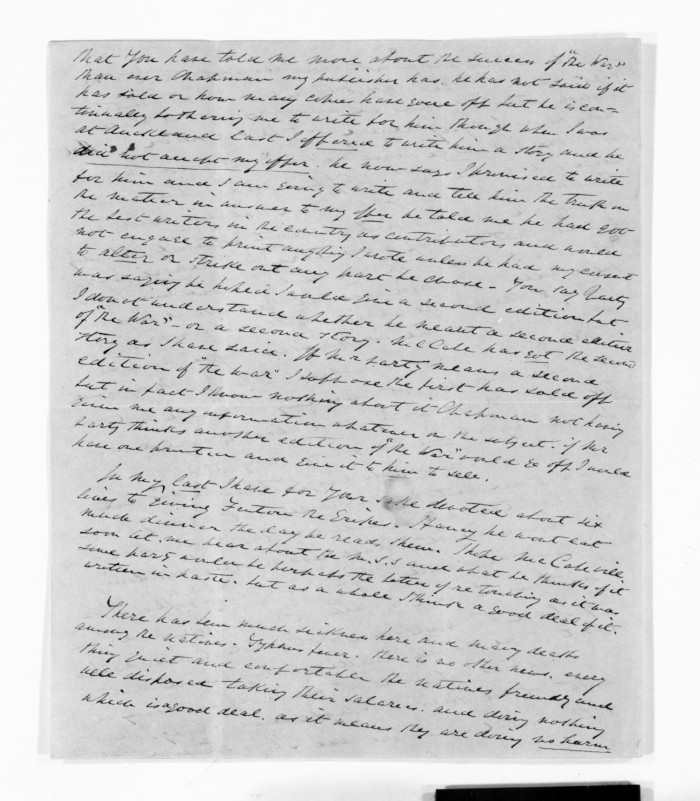 that you have told me more about the success of "the War"
than ever Chapman my publisher has. he has not said if it
has sold or how many copies have gone off but he is con-
tinually bothering me to write for him though when I was
at Auckland last I offered to write him a story and he
did not accept my offer. he now says I promised to write
for him and I am going to write and tell him the truth on
the matter in answer to my offer he told me he had got
the best writers in the country as contributors and would
not engage to print anything I wrote unless he had my consent
to alter or strike out any part he chose - You say Varty
was saying he hoped I would give a second edition but -
I do not understand whether he meant a second edition
of "the War" - or a second story. McCabe has got the second
story as I have said. If Mr Varty means a second
edition of "the War" I suppose the first has sold off
but in fact I know nothing about it Chapman not having
given me any information whatever on the subject. if Mr
Varty thinks another edition of "the War" would go off I would
have one printed and give it to him to sell.
In my last I have for your sake devoted about six
lines to giving the I fancy he wont eat
much dinner the day he reads them. I hope McCabe will
soon let me hear about the M.S.S and what he thinks of it
some parts would be perhaps the better of retouching as it was
written in haste. but as a whole I think a good deal of it.
There has been much sickness here and many deaths
among the natives. Typhus fever. there is no other news. every
thing quiet and comfortable the natives friendly and
well disposed taking their salaries. and doing nothing
which is a good deal. as it means they are doing no harm